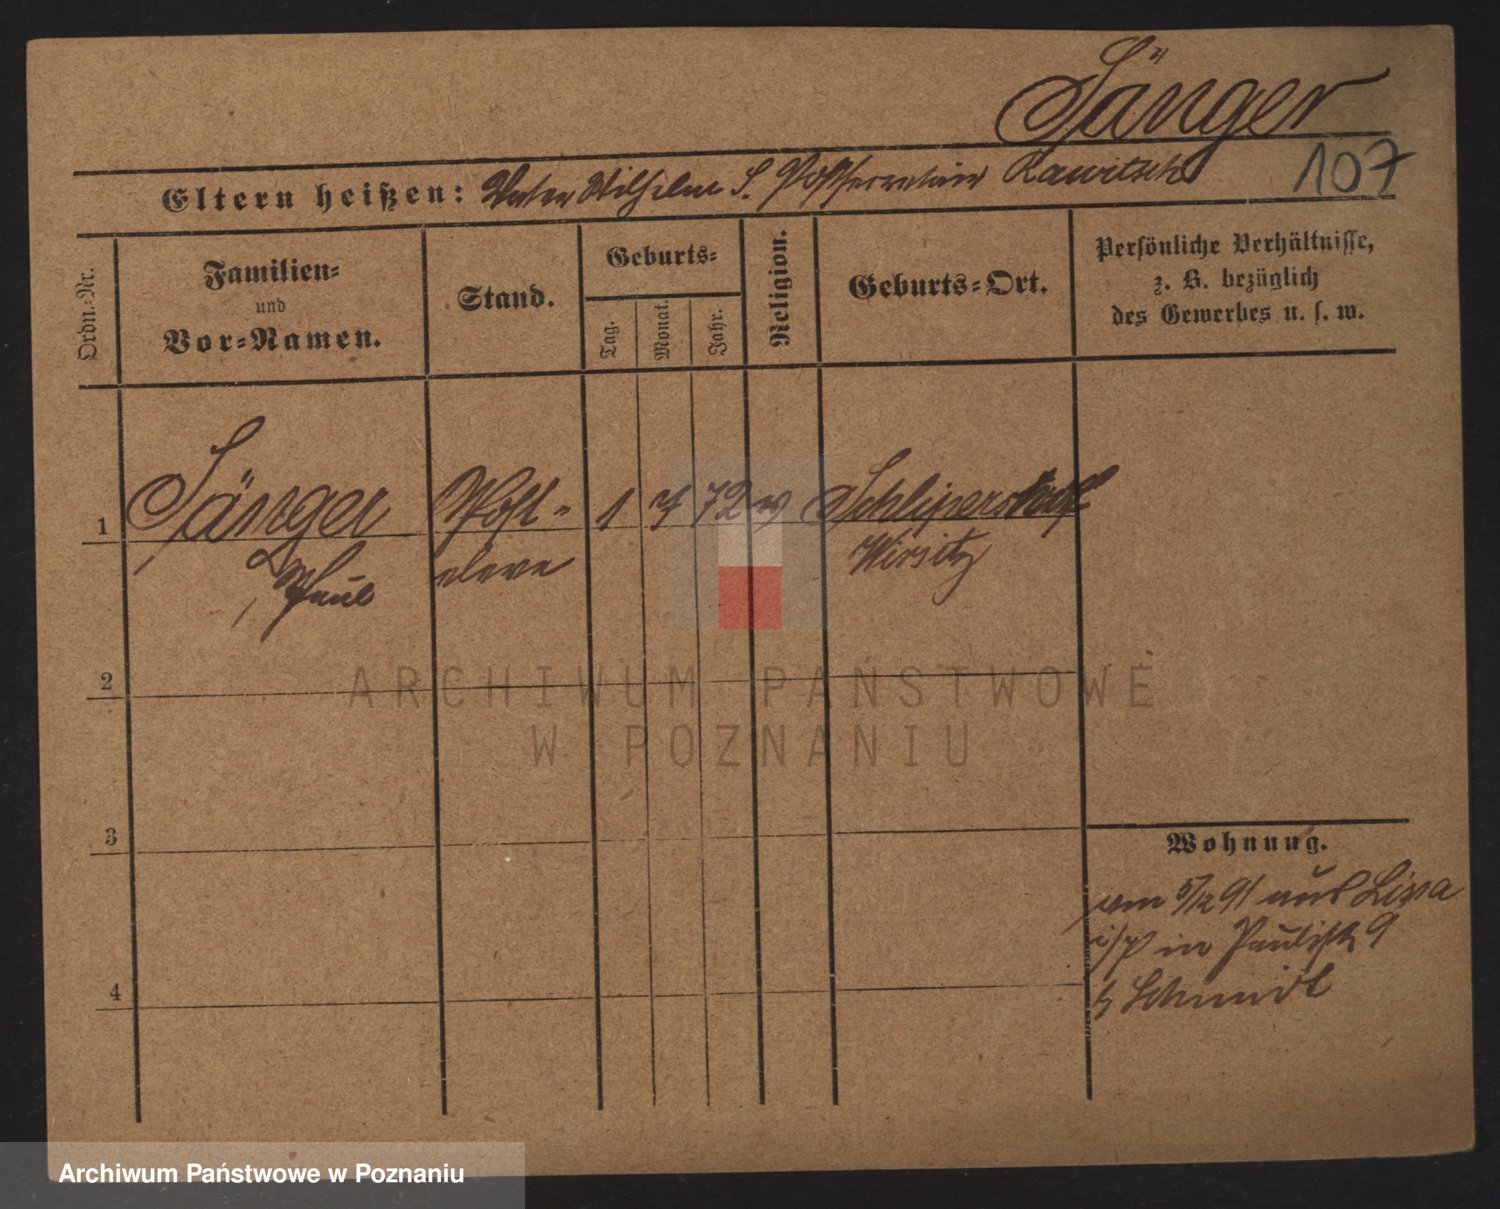 Sänger
107
Eltern heißen: Vater Wilhelm S. Postsecretär Rawitsch
Ordn.-Nr.
Familien-
und
Vor-Namen.
Stand.
Geburts-
Tag.
Monat.
Jahr.
Religion.
Geburts-Ort.
Persönliche Verhältnisse,
z. B. bezüglich
des Gewerbes u. s. w.
1 Sänger Post- 1 7 72
Paul eleve Wirsitz
2
3
4
Wohnung.
5/12 91 aus Lissa
in Paulistr 9
b Schmidt
ARCHIWUM PAŃSTWOWE
W POZNANIU
Archiwum Państwowe w Poznaniu